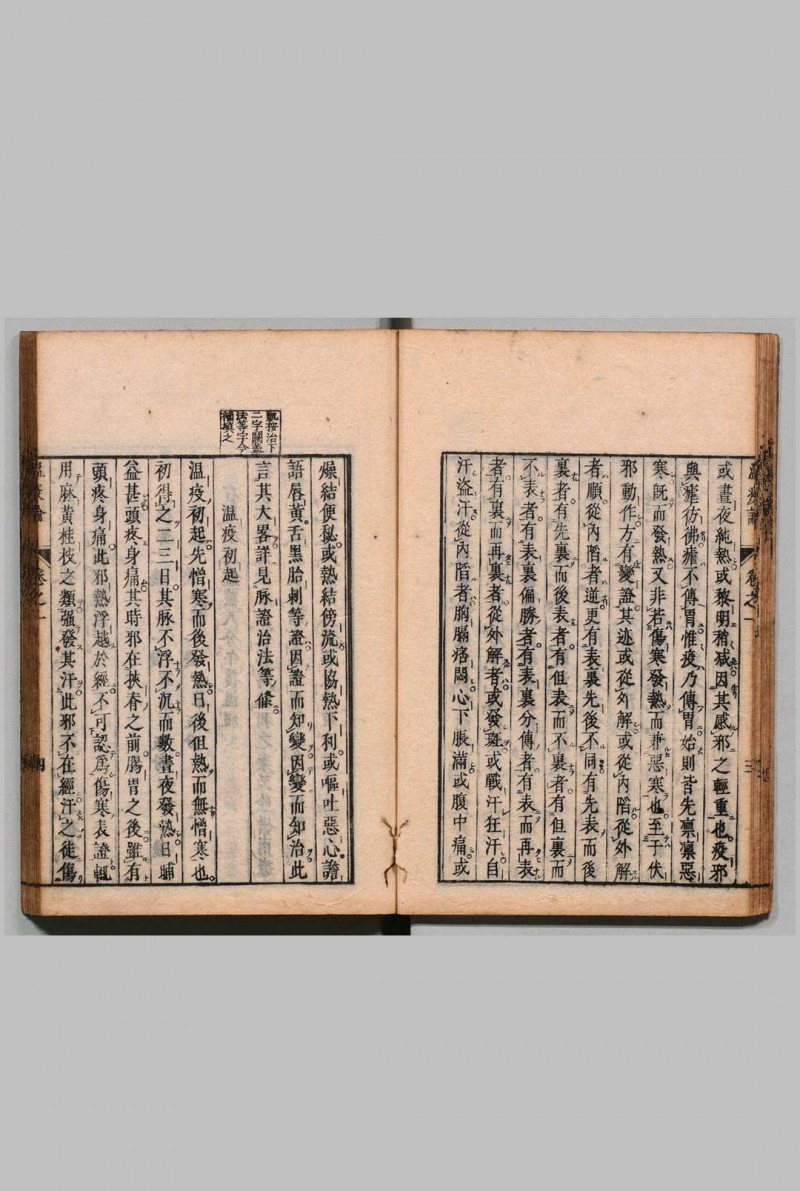 或晝夜純熱或黎明稍減因其感邪之輕重也疫邪
與瘧彷彿瘧不傳胃惟疫乃傳胃始則皆先凛凛惡
寒既而發熱又非若傷寒發熱而兼惡寒也至于伏
邪動作方有變證其迹或從外解或從內陷從外解
者順從內陷者逆更有表裏先後不同有先表而後
裏者有先裏而後表者有但表而不裏者有但裏而
不表者有表裏偏勝者有表裏分傳者有表而再表
者有裏而再裏者從外解者或發斑或戰汗狂汗自
汗盜汗從內陷者胸膈痞悶心下脹滿或腹中痛或
燥結便秘或熱結傍流或協熱下利或嘔吐惡心譫
語唇黃舌黑胎刺等證因證而知變因變而知治此
言其大畧詳見脉證治法等條
温疫初起
温疫初起先憎寒而後發熱日後但熱而無憎寒也
初得之二三日其脉不浮不沉而數晝夜發熱日晡
益甚頭疼身痛其時邪在挾脊之前腸胃之後雖有
頭疼身痛此邪熱浮越於經不可認爲傷寒表證輒
用麻黃桂枝之類強發其汗此邪不在經汗之徒傷
卷之一
三
卷之一
四